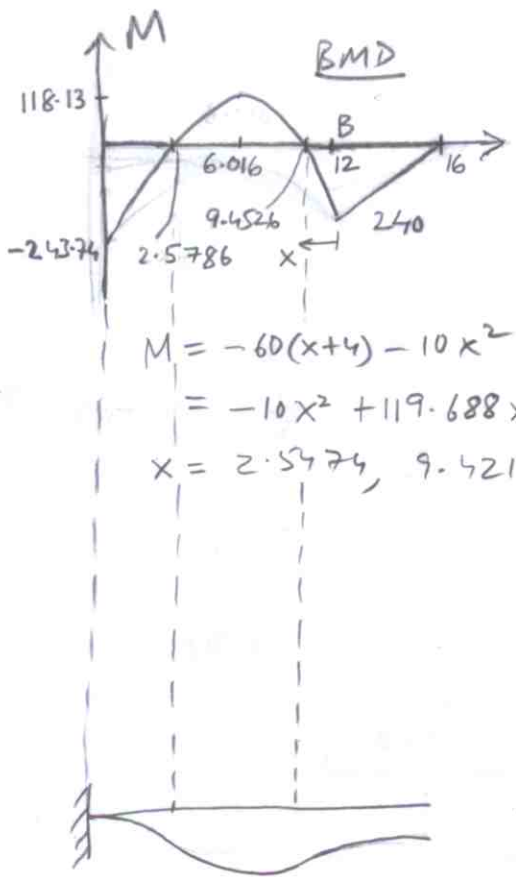 M
BMD
118.13
B
6.016
12
16
9.4526
240
-243.74
2.5786
x
M = -60(x+4) - 10x²
= -10x² + 119.688x
x = 2.5474, 9.421